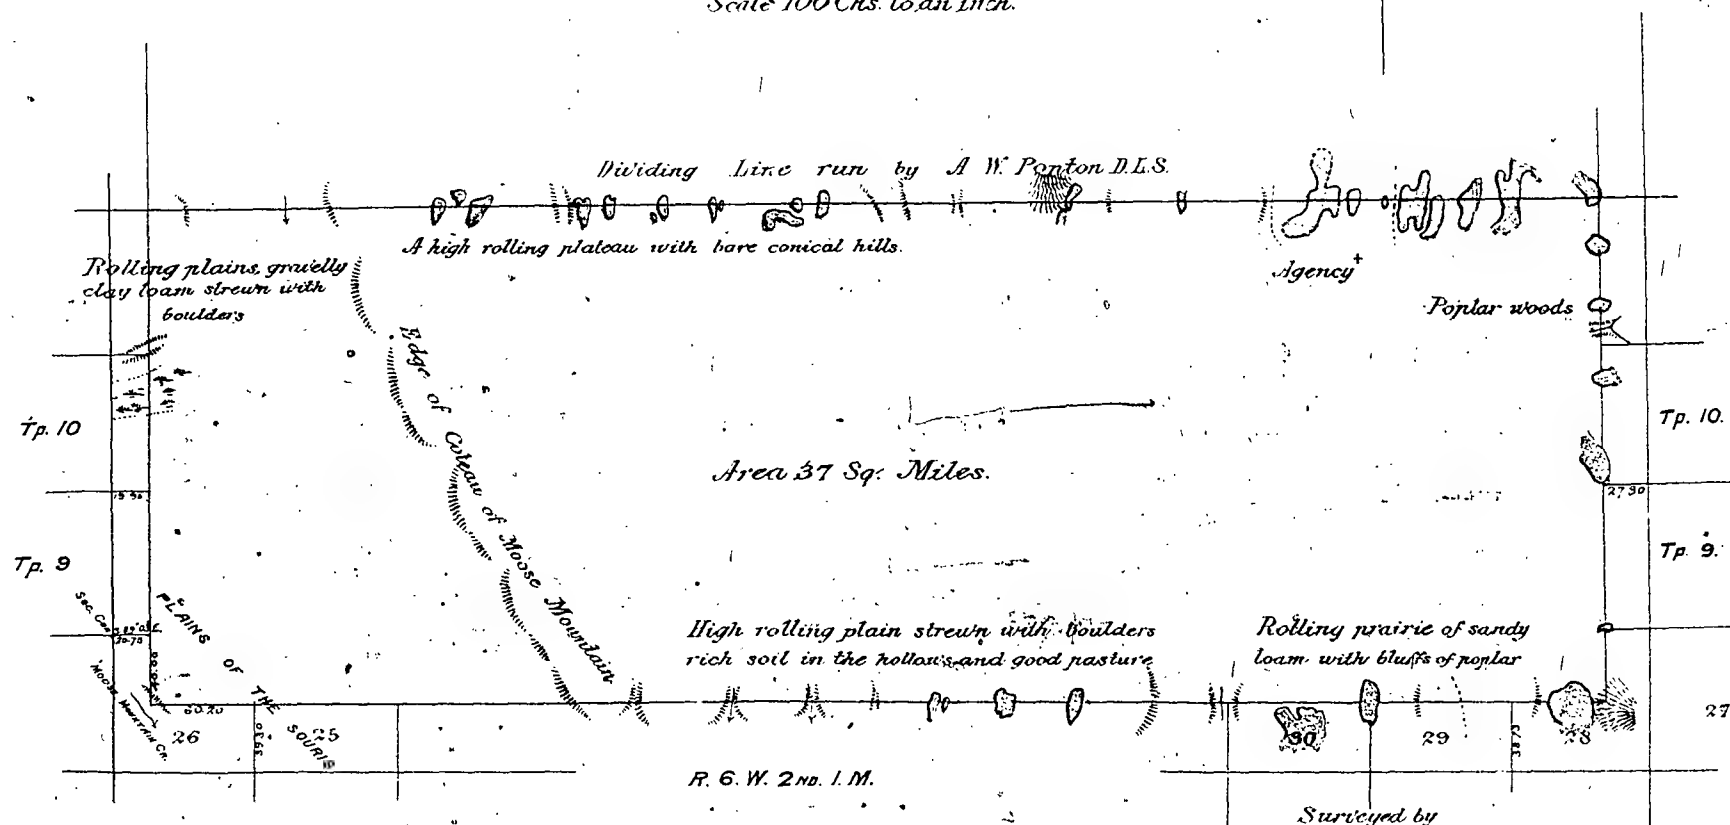 Scale 100 Chs. to an Inch.
Dividing Line run by A W. Ponton D.L.S.
A high rolling plateau with bare conical hills.
Rolling plains, gravelly
clay loam strewn with
boulders
Agency
Poplar woods
Edge of Coteau of Moose Mountain
Tp. 10
Tp. 10.
Area 37 Sq. Miles.
19.90
27.90
Tp. 9
Tp. 9.
PLAINS OF THE SOURIS
High rolling plain strewn with boulders
rich soil in the hollows and good pasture
Rolling prairie of sandy
loam with bluffs of poplar
MOOSE MOUNTAIN CR.
60.20
26
25
30
29
28
27
R. 6. W. 2ND. I. M.
Surveyed by